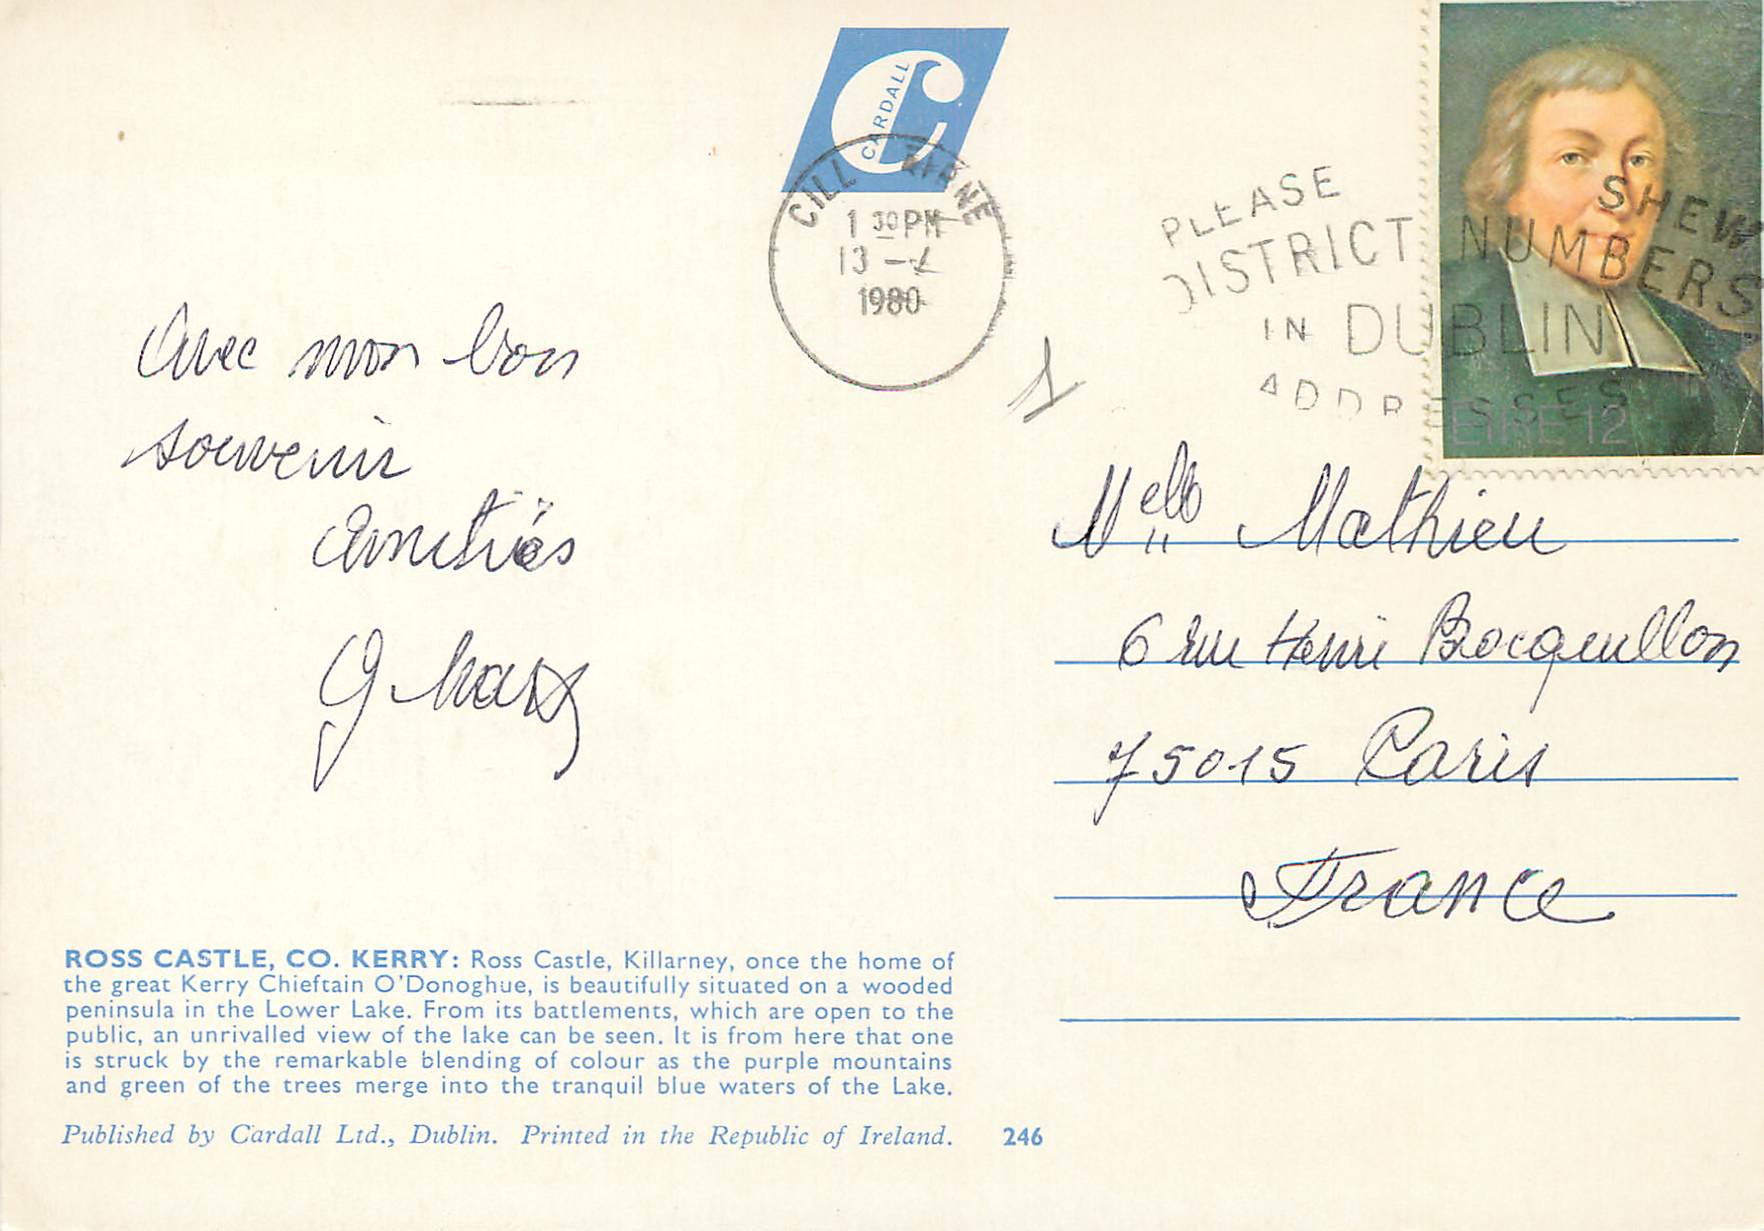 CARDALL
CILL AIRNE
1 30PM
13
1980
PLEASE SHEW
DISTRICT NUMBERS
IN DUBLIN
ADDRESSES
EIRE 12
Avec mon bon
souvenir
Amitiés
Melle Mathieu
6 rue Henri Bocquillon
75015 Paris
France
ROSS CASTLE, CO. KERRY: Ross Castle, Killarney, once the home of
the great Kerry Chieftain O'Donoghue, is beautifully situated on a wooded
peninsula in the Lower Lake. From its battlements, which are open to the
public, an unrivalled view of the lake can be seen. It is from here that one
is struck by the remarkable blending of colour as the purple mountains
and green of the trees merge into the tranquil blue waters of the Lake.
Published by Cardall Ltd., Dublin. Printed in the Republic of Ireland. 246